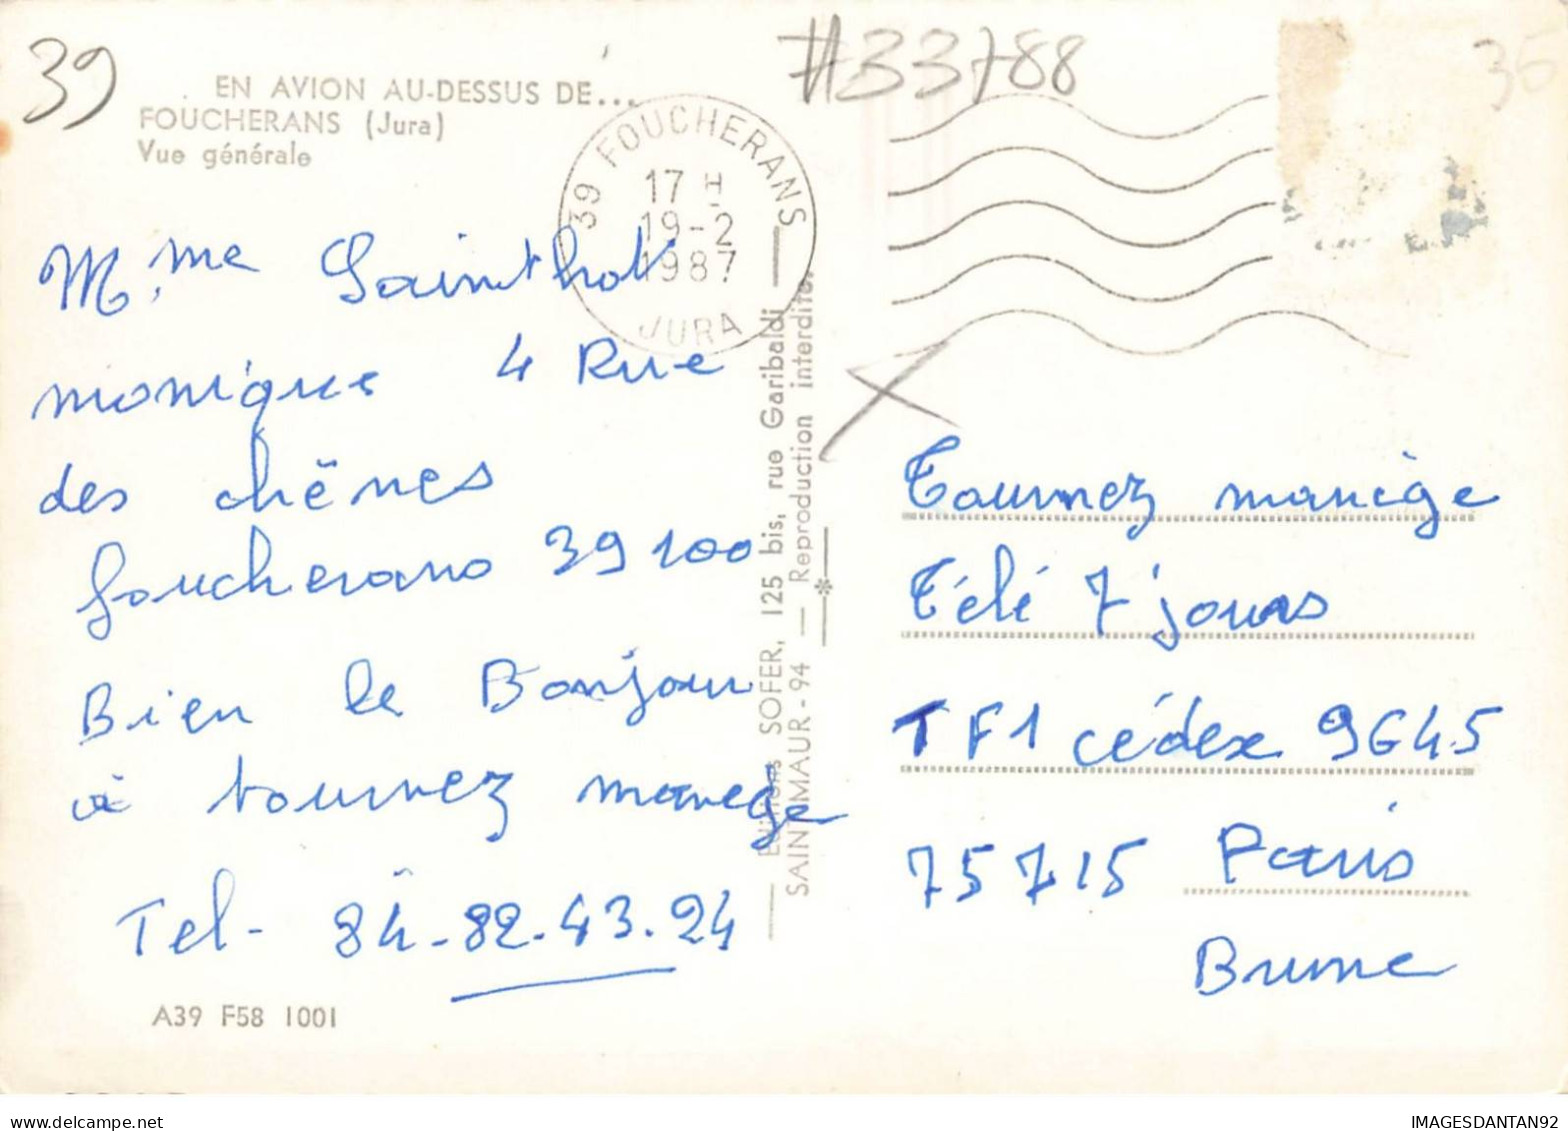 39
#33788
36
EN AVION AU-DESSUS DE...
FOUCHERANS (Jura)
Vue générale
39 FOUCHERANS
17 H
19-2
1987
JURA
Mme
monique 4 Rue
des chënes
foucherans 39100
Bien le Bonjour
à tournez manège
Tel- 84-82-43.24
A39 F58 1001
Editions SOFER, 125 bis, rue Garibaldi
SAINT-MAUR - 94 — Reproduction interdite.
Tournez manège
Télé 7 jours
TF1 cédex 9645
75715 Paris
Brune
IMAGESDANTAN92
delcampe.net